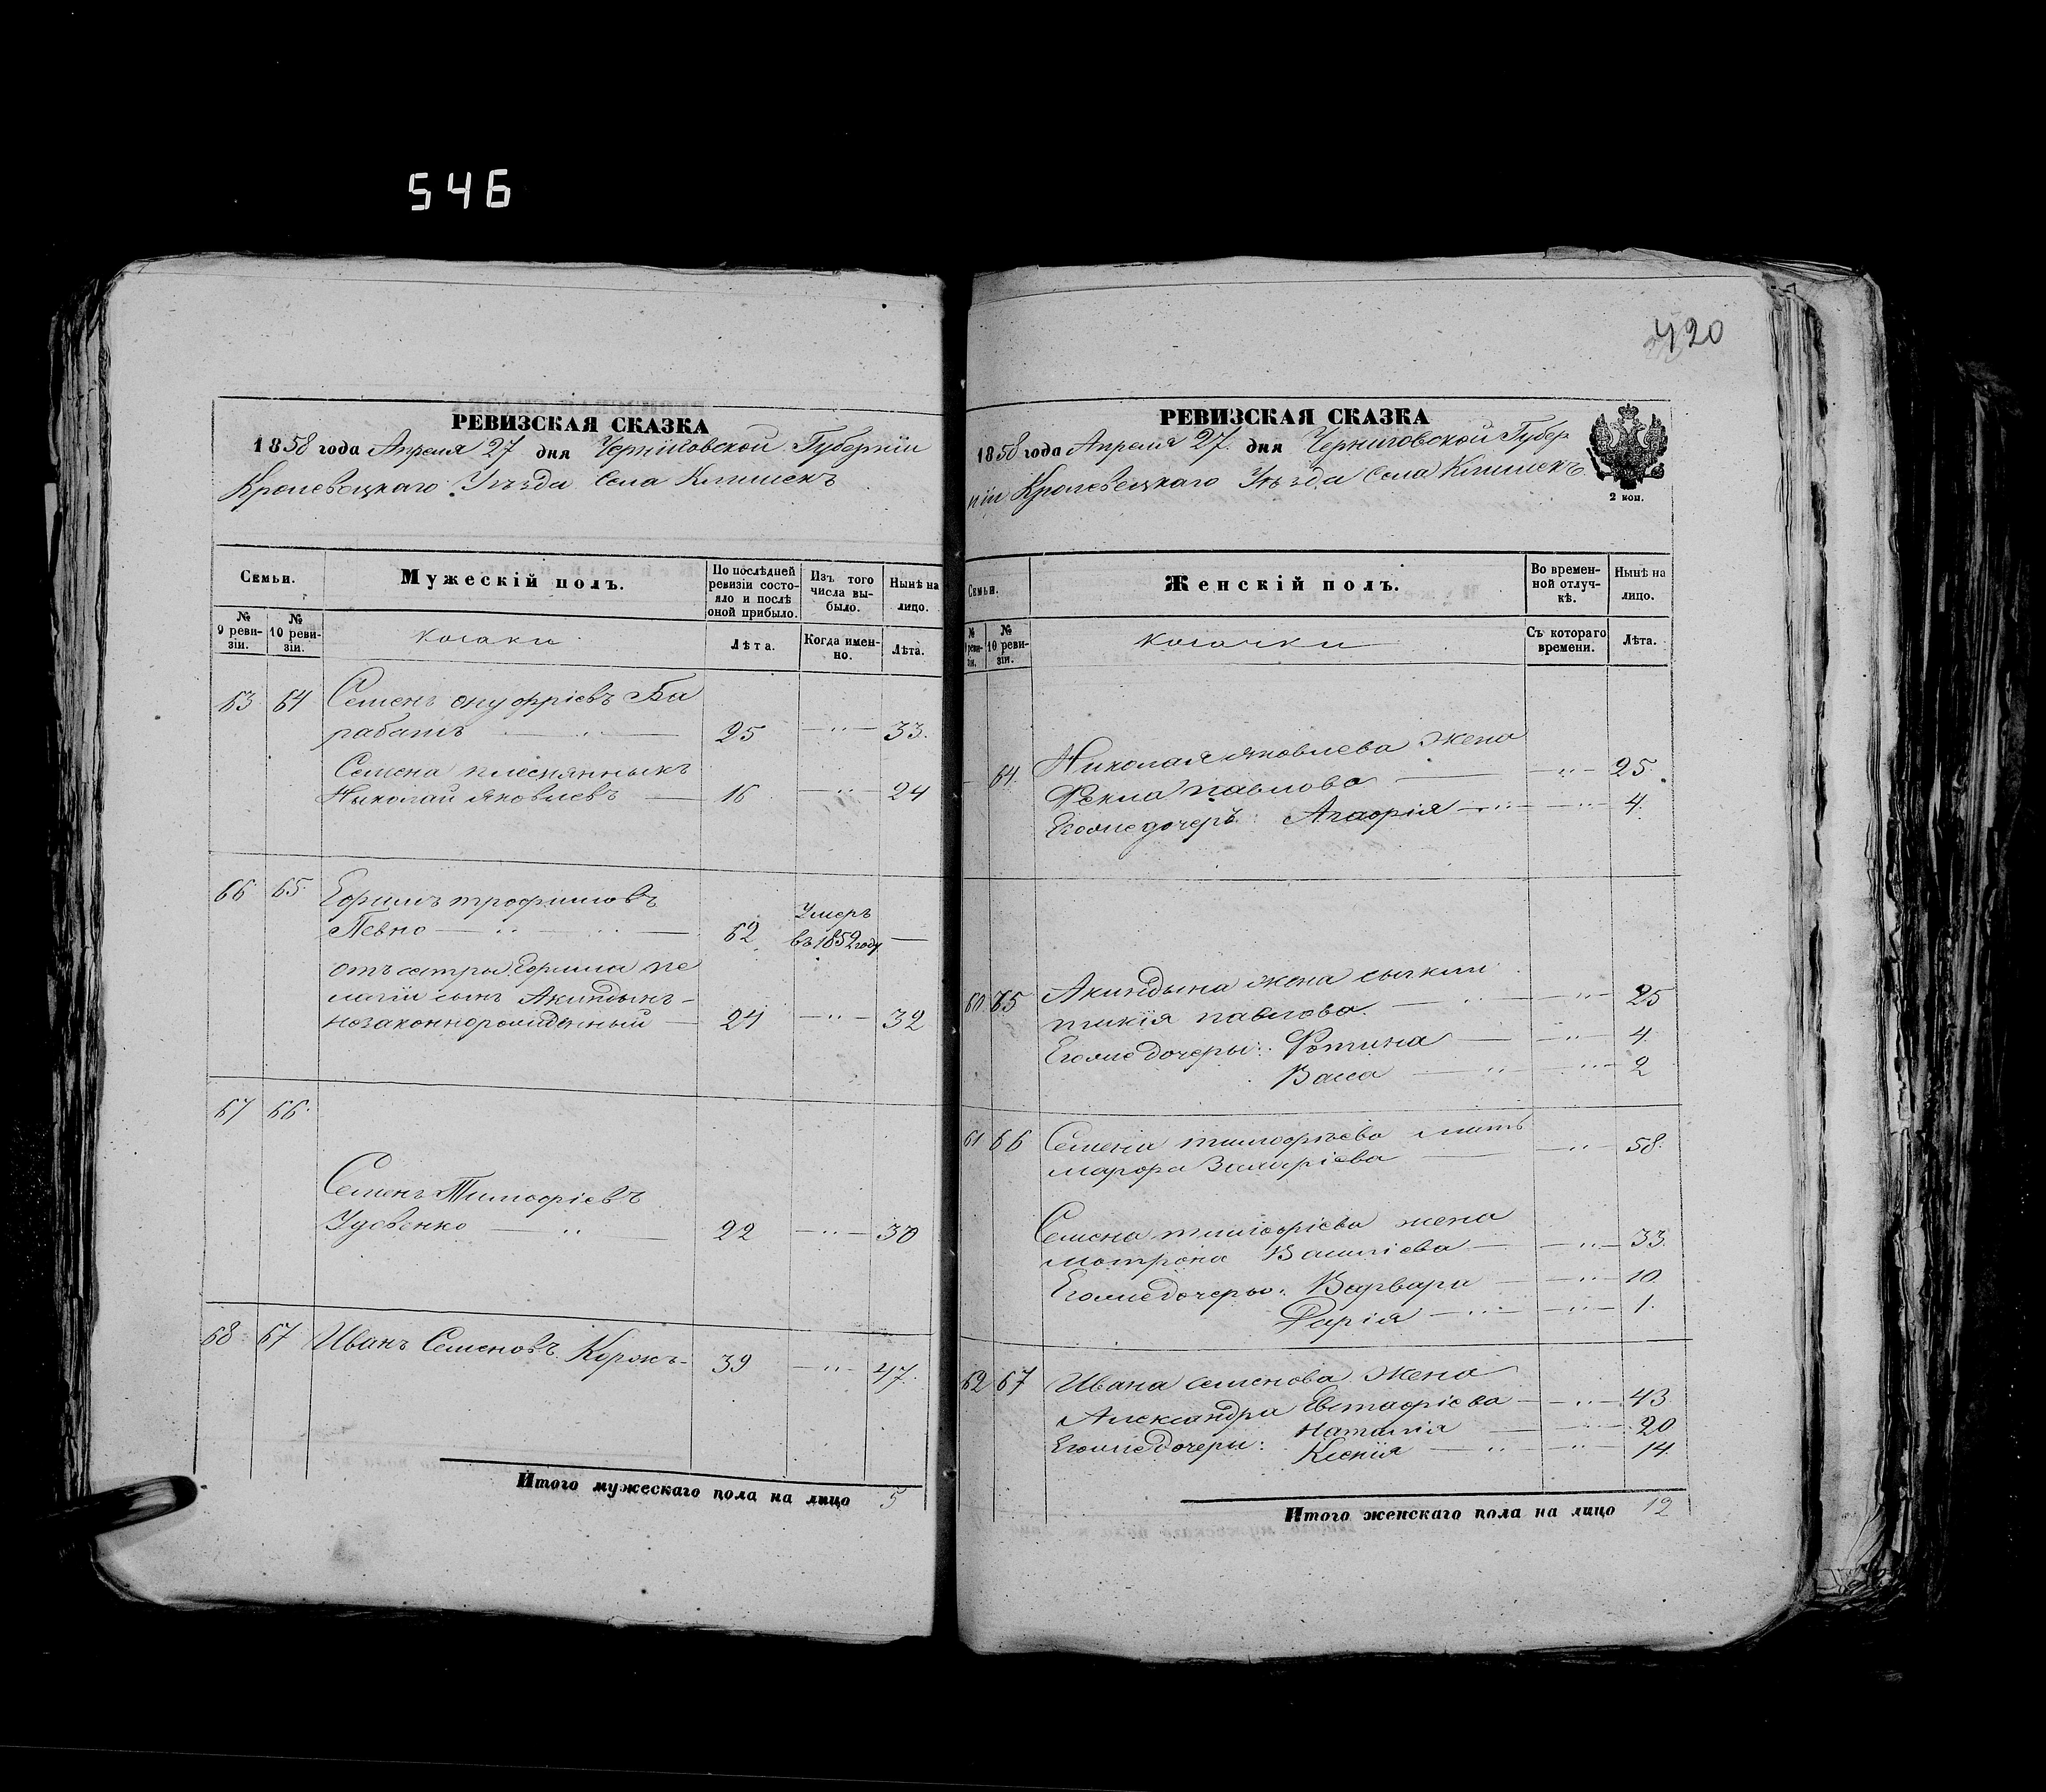 546
420
РЕВИЗСКАЯ СКАЗКА
1858 года Апреля 27 дня Черниговской Губернїи
Кролевецкаго Уѣзда Села Клишекъ
Семьи.
Мужескій полъ.
По послѣдней ревизіи состояло и послѣ оной прибыло.
Изъ того числа выбыло.
Нынѣ на лицо.
№ 9 ревизіи.
№ 10 ревизіи.
козаки
Лѣта.
Когда именно.
Лѣта.
63 64 Семенъ Онуфріевъ Ба
рабашъ 25 — „ — 33.
Семена племянныкъ
Ныколай Яковлевъ — 16 — „ — 24
66 65. Ефимъ трофимовъ
Певно — 62 Умеръ въ 1852 году —
отъ сестры Ефима пе
лагіи сынъ Акиндынъ
незаконнорожденный — 24 — „ — 32
67 66.
Семенъ Тимофіевъ
Усвенко 22 — „ — 30
68 67 Иванъ Семеновъ Коржъ 39 — „ — 47.
Итого мужескаго пола на лицо 5
РЕВИЗСКАЯ СКАЗКА
1858 года Апреля 27. дня Черниговской Губер
ніи Кролевецкаго Уѣзда Села Клишекъ
2 коп.
Семьи.
Женскій полъ.
Во временной отлучкѣ.
Нынѣ на лицо.
№ 9 ревизіи.
№ 10 ревизіи.
козачки
Съ котораго времени.
Лѣта.
— 64. Николая Яковлева жена
Фекла павлова — „ — 25.
Егоже дочеръ: Агафія — „ — 4.
60 65 Акиндына жена
павлова. — „ — 25
Егоже дочеры: Фотина — „ — 4.
Васса — „ — 2
61 66 Семена тимофѣева мать
марфа Захаріева — „ — 58.
Семена тимофіева жена
мотрона Василіева — „ — 33.
Егоже дочеры: Варвара — „ — 10
Дарія — „ — 1.
62 67 Ивана семенова жена
Александра Евстафіева — „ — 43
Егоже дочери: Наталія — „ — 20
Ксенія — „ — 14
Итого женскаго пола на лицо 12